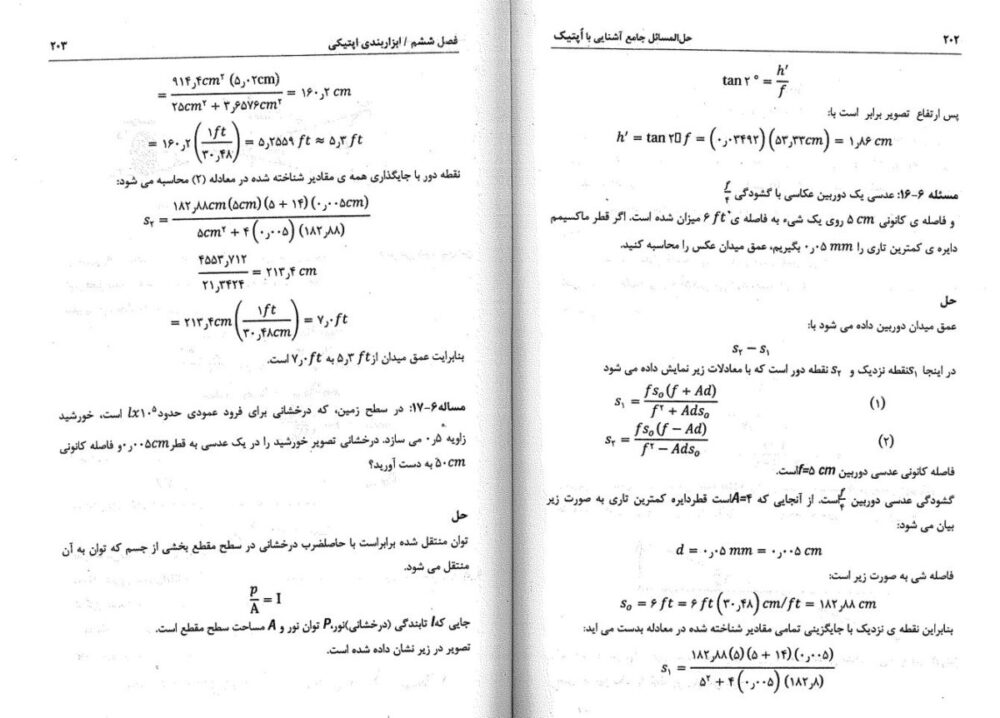 ۲۰۲
حل‌المسائل جامع آشنایی با اُپتیک
tan ۲° = h′/f
پس ارتفاع تصویر برابر است با:
h′ = tan ۲□ f = (۰٫۰۳۴۹۲)(۵۳٫۳۳cm) = ۱٫۸۶ cm
مسئله ۶-۱۶: عدسی یک دوربین عکاسی با گشودگی f/۴
و فاصله ی کانونی ۵ cm روی یک شیء به فاصله ی ۶ ft میزان شده است. اگر قطر ماکسیمم
دایره ی کمترین تاری را ۰٫۰۵ mm بگیریم، عمق میدان عکس را محاسبه کنید.
حل
عمق میدان دوربین داده می شود با:
s۲ − s۱
در اینجا s۱نقطه نزدیک و s۲ نقطه دور است که با معادلات زیر نمایش داده می شود
s۱ = fs₀(f + Ad) / f² + Ads₀ (۱)
s۲ = fs₀(f − Ad) / f² − Ads₀ (۲)
فاصله کانونی عدسی دوربین f=۵ cmاست.
گشودگی عدسی دوربین f/۴است. از آنجایی که A=۴است قطردایره کمترین تاری به صورت زیر
بیان می شود:
d = ۰٫۰۵ mm = ۰٫۰۰۵ cm
فاصله شی به صورت زیر است:
s₀ = ۶ ft = ۶ ft(۳۰٫۴۸) cm/ft = ۱۸۲٫۸۸ cm
بنابراین نقطه ی نزدیک با جایگزینی تمامی مقادیر شناخته شده در معادله بدست می اید:
s۱ = ۱۸۲٫۸۸(۵)(۵ + ۱۴)(۰٫۰۰۵) / ۵² + ۴(۰٫۰۰۵)(۱۸۲٫۸)
فصل ششم / ابزاربندی اپتیکی
۲۰۳
= ۹۱۴٫۴cm² (۵٫۰۲cm) / ۲۵cm² + ۳٫۶۵۷۶cm² = ۱۶۰٫۲ cm
= ۱۶۰٫۲ (۱ft / ۳۰٫۴۸) = ۵٫۲۵۵۹ ft ≈ ۵٫۳ ft
نقطه دور با جایگذاری همه ی مقادیر شناخته شده در معادله (۲) محاسبه می شود:
s۲ = ۱۸۲٫۸۸cm(۵cm)(۵ + ۱۴)(۰٫۰۰۵cm) / ۵cm² + ۴(۰٫۰۰۵)(۱۸۲٫۸۸)
۴۵۵۳٫۷۱۲ / ۲۱٫۳۴۲۴ = ۲۱۳٫۴ cm
= ۲۱۳٫۴cm (۱ft / ۳۰٫۴۸cm) = ۷٫۰ft
بنابرایت عمق میدان از۵٫۳ ft به ۷٫۰ft است.
مساله۶-۱۷: در سطح زمین، که درخشانی برای فرود عمودی حدود۱۰⁵lx است، خورشید
زاویه ۰٫۵ می سازد. درخشانی تصویر خورشید را در یک عدسی به قطر۰٫۰۰۵cmو فاصله کانونی
۵۰cm به دست آورید؟
حل
توان منتقل شده برابراست با حاصلضرب درخشانی در سطح مقطع بخشی از جسم که توان به آن
منتقل می شود.
p/A = I
جایی که I تابندگی (درخشانی)نور،P توان نور و A مساحت سطح مقطع است.
تصویر در زیر نشان داده شده است.